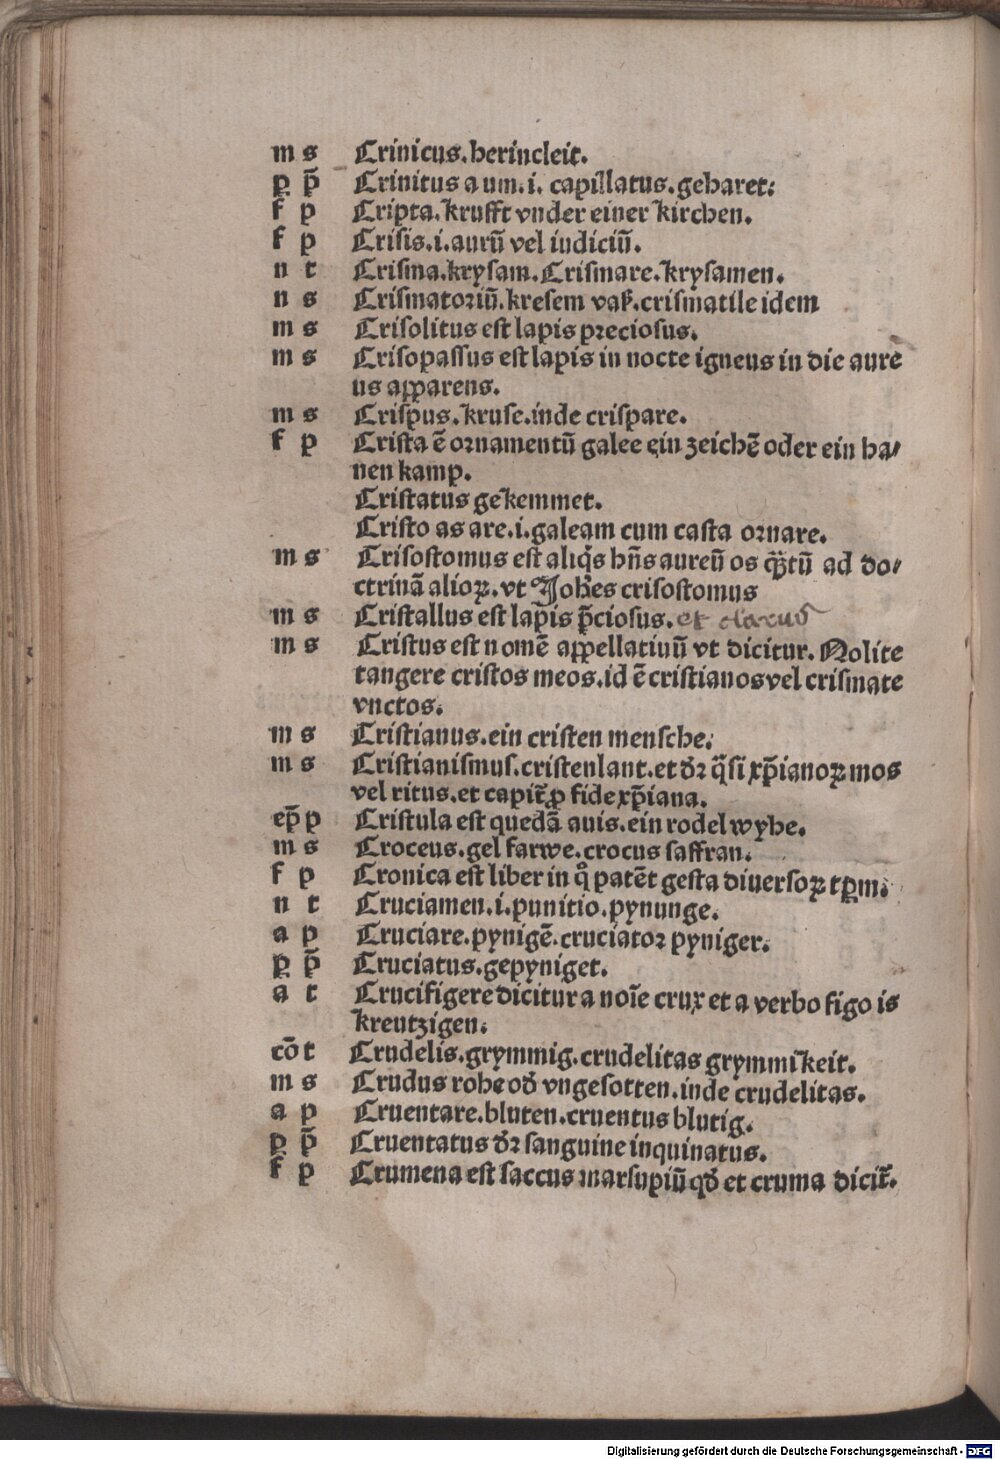 m s Crinicus.herincleit.
ꝑ p̄ Crinitus a um.i. capillatus.geharet:
f p Cripta.krufft vnder einer kirchen.
f p Crisis.i.aurū vel iudiciū.
n t Crisma.krysam.Crismare.krysamen.
n s Crismatoriū.kresem vaß.crismatile idem
m s Crisolitus est lapis preciosus.
m s Crisopassus est lapis in nocte igneus in die aure
us apparens.
m s Crispus.kruse.inde crispare.
f p Crista ē ornamentū galee ein zeichē oder ein ha/
nen kamp.
Cristatus gekemmet.
Cristo as are.i.galeam cum casta ornare.
m s Crisostomus est aliqͥs hn̄s aureū os qͣ̄tū ad do/
ctrinā alioꝝ.vt Joh̄es crisostomus
m s Cristallus est lapis p̄ciosus. et clarus
m s Cristus est nomē appellatiuū vt dicitur. Nolite
tangere cristos meos.id ē cristianos vel crismate
vnctos.
m s Cristianus.ein cristen mensche.
m s Cristianismus.cristenlant.et dr̄ qͣsi xp̄ianoꝝ mos
vel ritus.et capit̄ ꝓ fide xp̄iana.
ep̄ p Cristula est quedā auis.ein rodel wyhe.
m s Croceus.gel farwe.crocus saffran.
f p Cronica est liber in qͦ patēt gesta diuersoꝝ tꝑm.
n t Cruciamen.i.punitio.pynunge.
a p Cruciare.pynigē.cruciator pyniger.
ꝑ p̄ Cruciatus.gepyniget.
a t Crucifigere dicitur a noīe crux et a verbo figo is
kreutzigen.
cō t Crudelis.grymmig.crudelitas grymmikeit.
m s Crudus rohe od̄ vngesotten.inde crudelitas.
a p Cruentare.bluten.cruentus blutig.
ꝑ p̄ Cruentatus dr̄ sanguine inquinatus.
f p Crumena est saccus marsupiū qd̄ et cruma dicit̄.
Digitalisierung gefördert durch die Deutsche Forschungsgemeinschaft - DFG